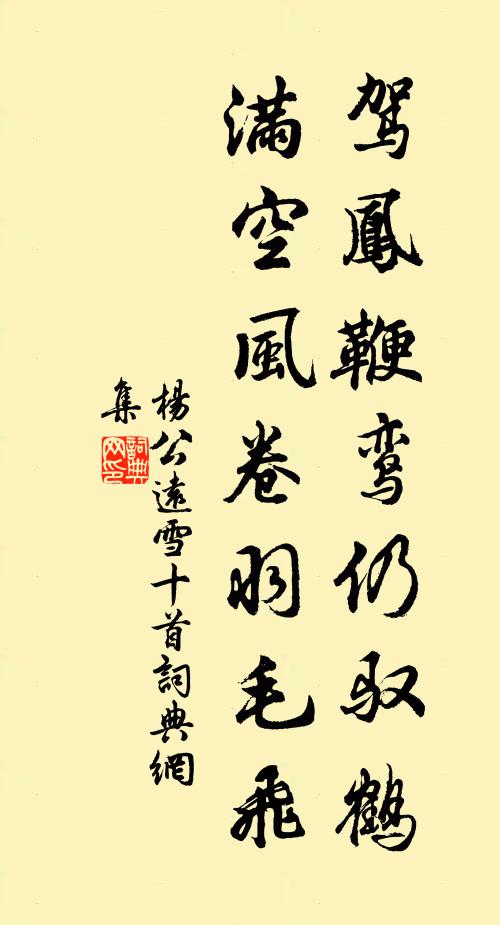 驾鳳鞭鸾仍驭鶴
滿空風卷羽毛飛
楊公遠雪十首詞典網
集
詞典網印